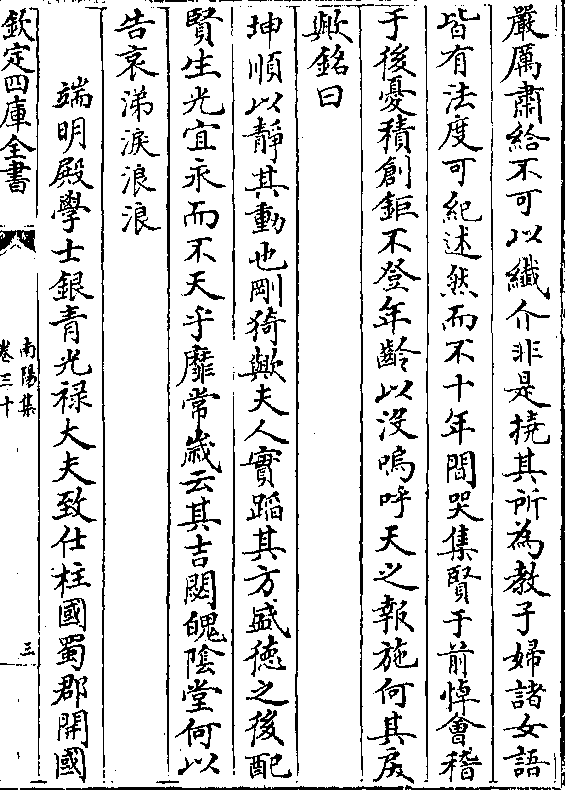 嚴厲肅給不可以纎介非是撓其所為教子婦諸女語
皆有法度可紀述然而不十年間哭集賢于前悼㑹稽
于後憂積創鉅不登年齡以没嗚呼天之報施何其戾
歟銘曰
坤順以靜其動也剛猗歟夫人實蹈其方盛徳之後配
賢生光宜永而不天乎靡常歲云其吉閟魄陰堂何以
告哀涕淚浪浪
端明殿學士銀青光禄大夫致仕柱國蜀郡開國
欽定四庫全書
南陽集
卷三十
三